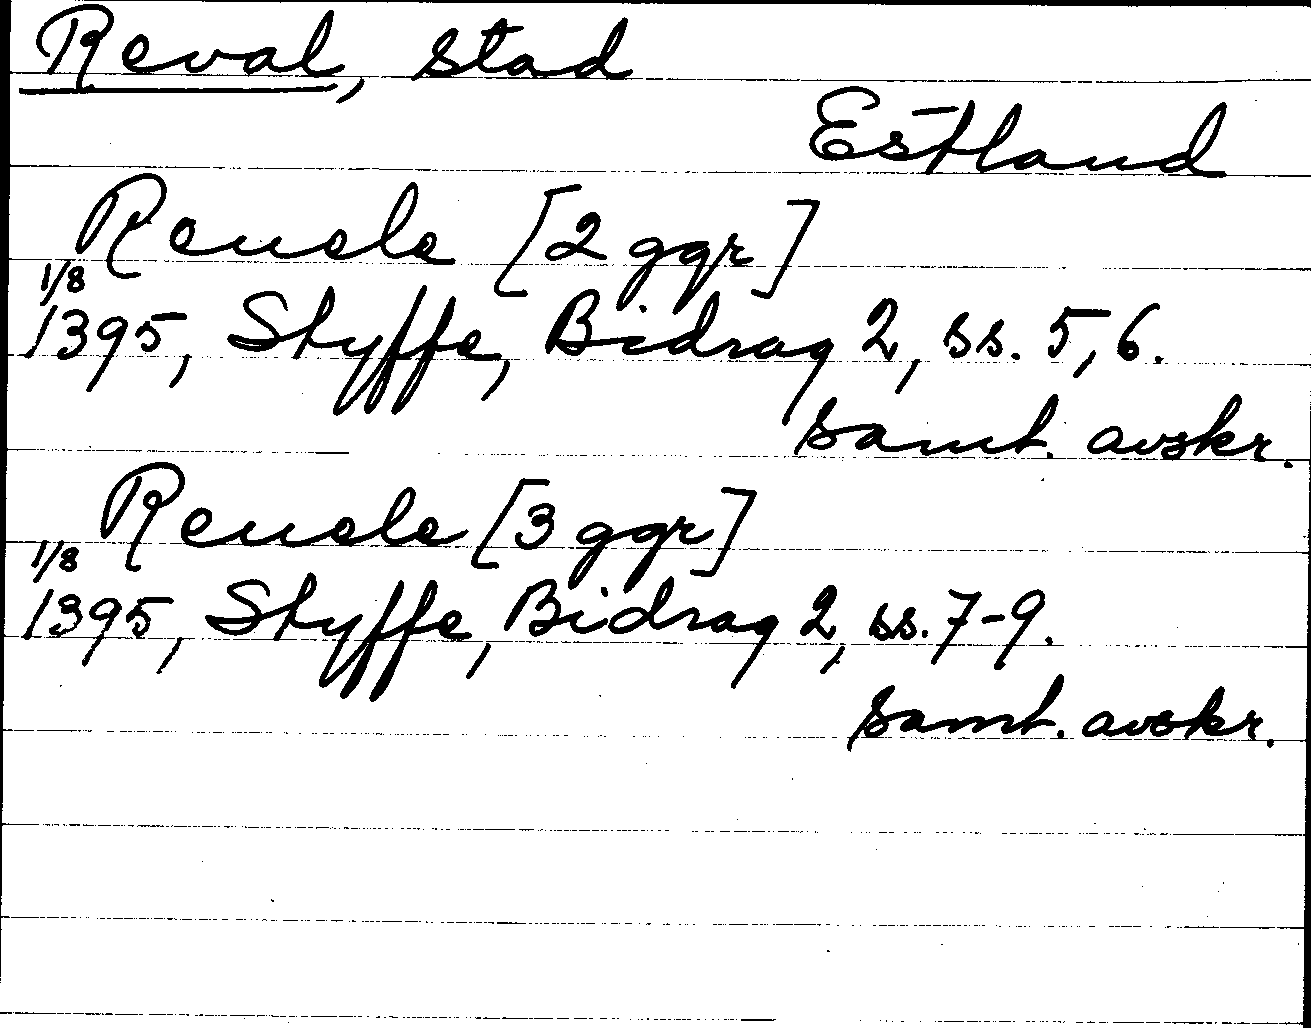 Reval, stad
Estland
Reuele [2 ggr]
1/8
1395, Styffe, Bidrag 2, ss. 5, 6.
samt. avskr.
Reuele [3 ggr]
1/8
1395, Styffe, Bidrag 2, ss. 7-9.
samt. avskr.